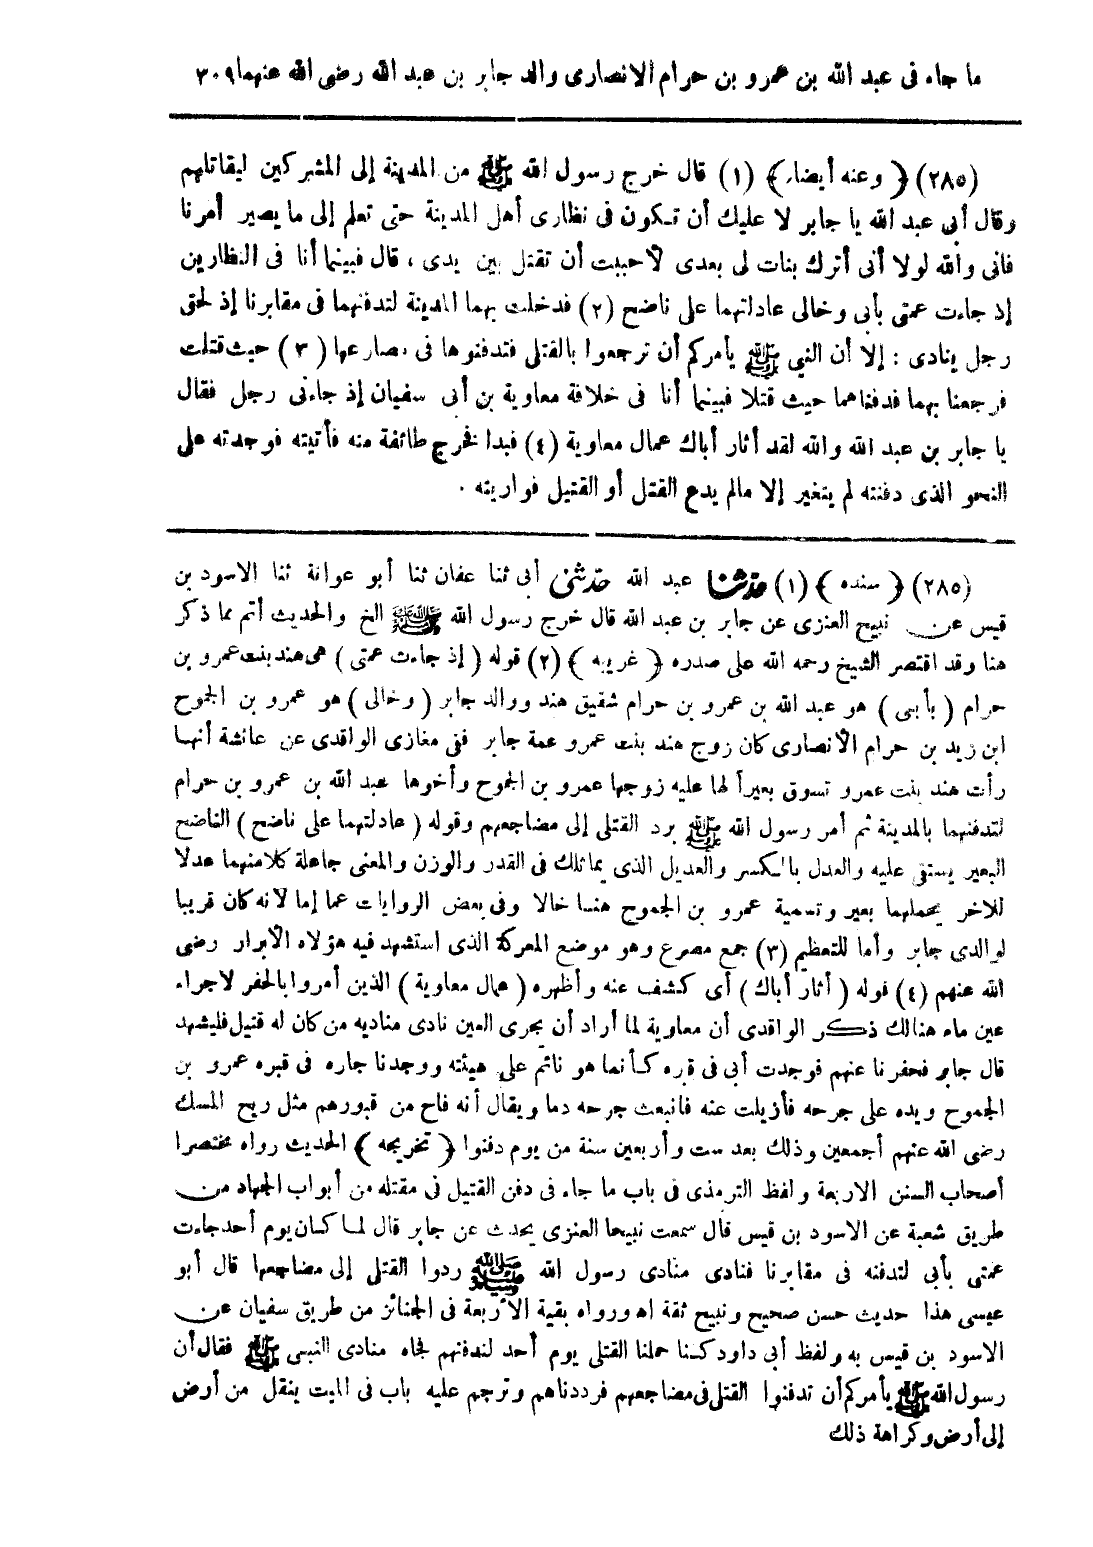 ما جاء فى عبد الله بن عمرو بن حرام الانصارى والد جابر بن عبد الله رضى الله عنهما ٣٠٩
(٢٨٥) ﴿ وعنه أيضا. ﴾ (١) قال خرج رسول الله ﷺ من المدينة إلى المشركين ليقاتلهم
وقال أبى عبد الله يا جابر لا عليك أن تكون فى نظارى أهل المدينة حتى تعلم إلى ما يصير أمرنا
فانى والله لولا أنى أترك بنات لى بعدى لأحببت أن تقتل بين يدى ، قال فبينما أنا فى النظارين
إذ جاءت عمتى بأبى وخالى عادلتهما على ناضح (٢) فدخلت بهما المدينة لتدفنهما فى مقابرنا إذ لحق
رجل ينادى : إلا أن النبي ﷺ يأمركم أن ترجعوا بالقتلى فتدفنوها فى مصارعها ( ٣ ) حيث قتلت
فرجعنا بهما فدفناهما حيث قتلا فبينما أنا فى خلافة معاوية بن أبى سفيان إذ جاءنى رجل فقال
يا جابر بن عبد الله والله لقد أثار أباك عمال معاوية (٤) فبدا فخرج طائفة منه فأتيته فوجدته على
النحو الذى دفنته لم يتغير إلا مالم يدع القتل أو القتيل فواريته .
(٢٨٥) ﴿ سنده ﴾ (١) حدثنا عبد الله حدثنى أبى ثنا عفان ثنا أبو عوانة ثنا الاسود بن
قيس عن نبيح العنزى عن جابر بن عبد الله قال خرج رسول الله ﷺ الخ والحديث أتم مما ذكر
هنا وقد اقتصر الشيخ رحمه الله على صدره ﴿ غريبه ﴾ (٢) قوله ( إذ جاءت عمتى ) هى هند بنت عمرو بن
حرام ( بأبى ) هو عبد الله بن عمرو بن حرام شقيق هند ووالد جابر ( وخالى ) هو عمرو بن الجموح
ابن زيد بن حرام الأنصارى كان زوج هند بنت عمرو عمة جابر ففى مغازى الواقدى عن عائشة أنها
رأت هند بنت عمرو تسوق بعيراً لها عليه زوجها عمرو بن الجموح وأخوها عبد الله بن عمرو بن حرام
لتدفنهما بالمدينة ثم أمر رسول الله ﷺ برد القتلى إلى مضاجعهم وقوله ( عادلتهما على ناضح ) الناضح
البعير يستقى عليه والعدل بالكسر والعديل الذى يماثلك فى القدر والوزن والمعنى جاعلة كلا منهما عدلا
للاخر يحملهما بعير وتسمية عمرو بن الجموح هنا خالا وفى بعض الروايات عما إما لأنه كان قريبا
لوالدى جابر وأما للتعظيم (٣) جمع مصرع وهو موضع المعركة الذى استشهد فيه هؤلاء الأبرار رضى
الله عنهم (٤) قوله ( أثار أباك ) أى كشف عنه وأظهره ( عمال معاوية ) الذين أمروا بالحفر لاجراء
عين ماء هنالك ذكر الواقدى أن معاوية لما أراد أن يجرى العين نادى مناديه من كان له قتيل فليشهد
قال جابر فحفرنا عنهم فوجدت أبى فى قبره كأنما هو نائم على هيئته ووجدنا جاره فى قبره عمرو بن
الجموح ويده على جرحه فأزيلت عنه فانبعث جرحه دما ويقال أنه فاح من قبورهم مثل ريح المسك
رضى الله عنهم أجمعين وذلك بعد ست وأربعين سنة من يوم دفنوا ﴿ تخريجه ﴾ الحديث رواه مختصرا
أصحاب السنن الاربعة ولفظ الترمذى فى باب ما جاء فى دفن القتيل فى مقتله من أبواب الجهاد من
طريق شعبة عن الاسود بن قيس قال سمعت نبيحا العنزى يحدث عن جابر قال لما كان يوم أحد جاءت
عمتى بأبى لتدفنه فى مقابرنا فنادى منادى رسول الله ﷺ ردوا القتلى إلى مضاجعها قال أبو
عيسى هذا حديث حسن صحيح ونبيح ثقة اه ورواه بقية الأربعة فى الجنائز من طريق سفيان عن
الاسود بن قيس به ولفظ أبى داود كنا حملنا القتلى يوم أحد لندفنهم فجاء منادى النبى ﷺ فقال أن
رسول الله ﷺ يأمركم أن تدفنوا القتلى فى مضاجعهم فرددناهم وترجم عليه باب فى الميت ينقل من أرض
إلى أرض وكراهة ذلك